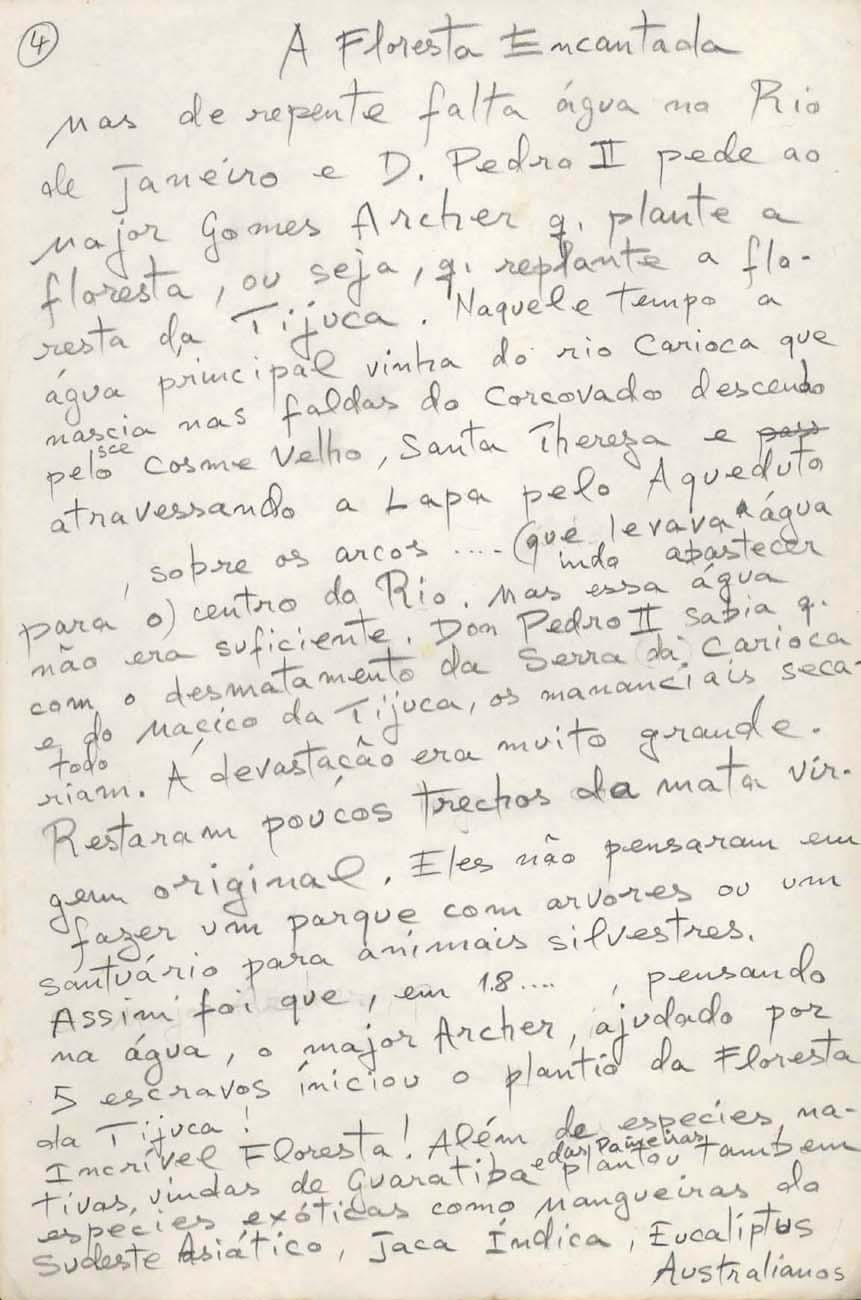 4
A Floresta Encantada
Mas de repente falta água no Rio
de Janeiro e D. Pedro II pede ao
Major Gomes Archer q. plante a
floresta, ou seja, q. replante a flo-
resta da Tijuca. Naquele tempo a
água principal vinha do rio Carioca que
nascia nas faldas do Corcovado descendo
pelo Cosme Velho, Santa Thereza e pass
atravessando a Lapa pelo Aqueduto
, sobre os arcos .... (que levava a água
indo abastecer
para o) centro do Rio. Mas essa água
não era suficiente. Don Pedro II sabia q.
com o desmatamento da Serra da Carioca
e do Maçico da Tijuca, os mananciais seca-
todo
riam. A devastação era muito grande.
Restaram poucos trechos da mata vir-
gem original. Eles não pensaram em
fazer um parque com arvores ou um
santuário para animais silvestres.
Assim foi que, em 18...., pensando
na água, o major Archer, ajudado por
5 escravos iniciou o plantio da Floresta
da Tijuca!
Incrível Floresta! Além de especies na-
tivas, vindas de Guaratiba e das Paineiras, plantou tambem
especies exóticas como Mangueiras do
Sudeste Asiático, Jaca Índica, Eucaliptus
Australianos